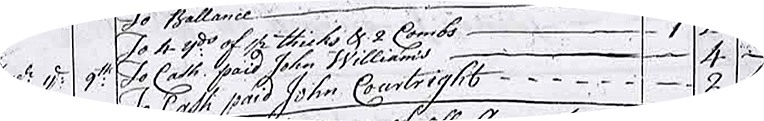 To Ballance
To 4 yds of ps thicks & 2 Combs 1
To Cash paid John Williams 4
9th To Cash paid John Courtright 2
To